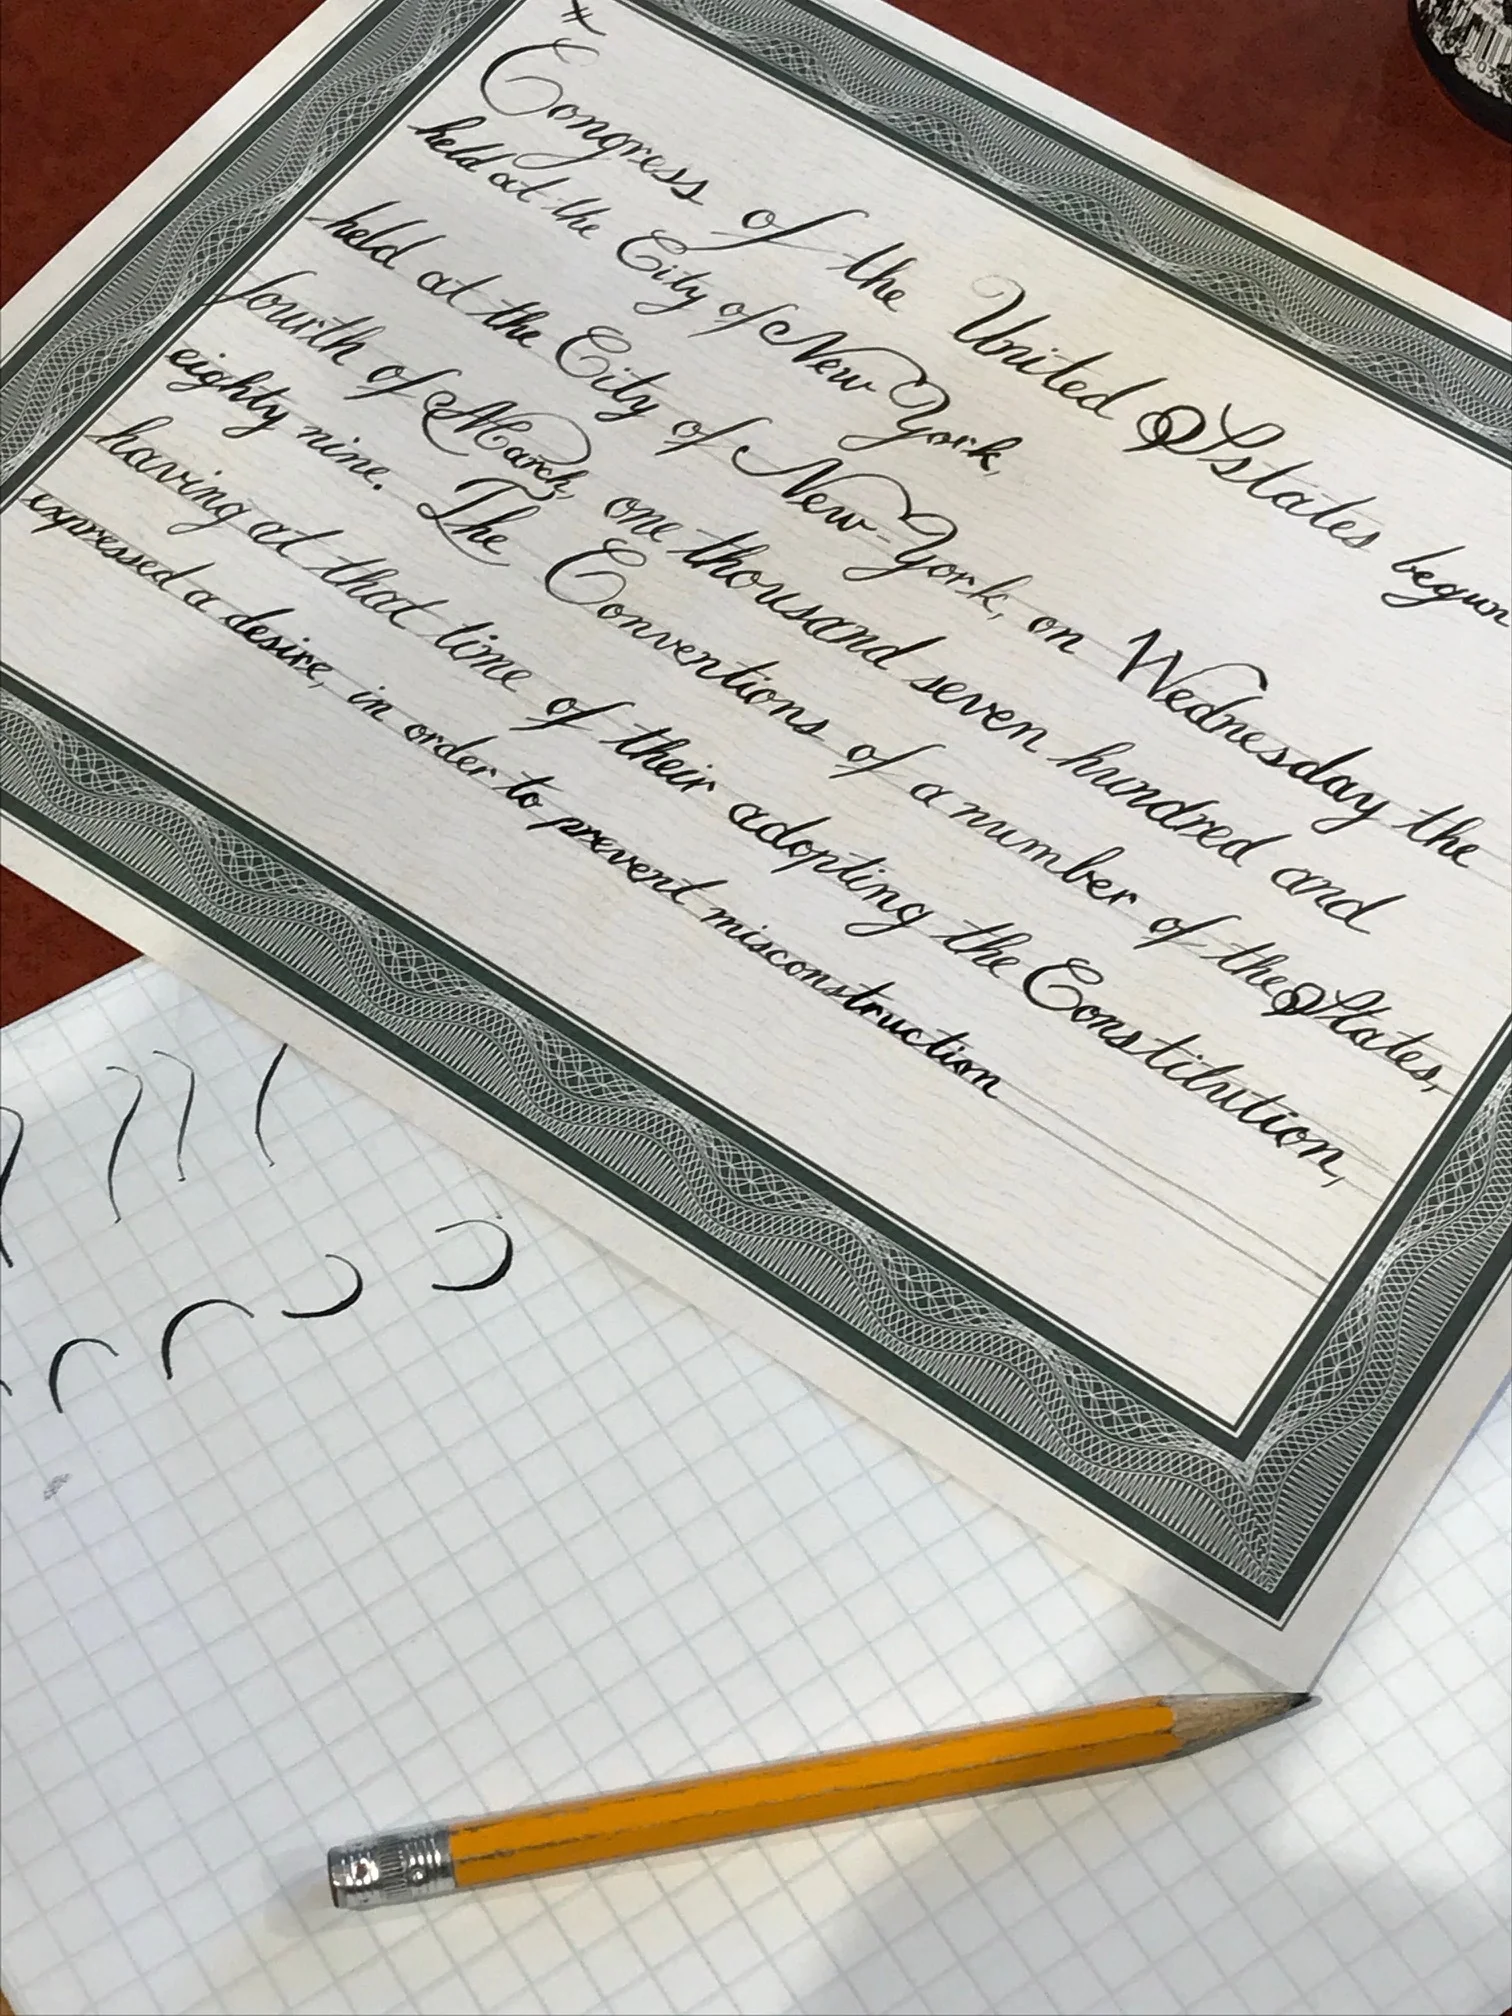 Congress of the United States begun
held at the City of New York,
held at the City of New-York, on Wednesday the
fourth of March, one thousand seven hundred and
eighty nine. The Conventions of a number of the States,
having at that time of their adopting the Constitution,
expressed a desire, in order to prevent misconstruction